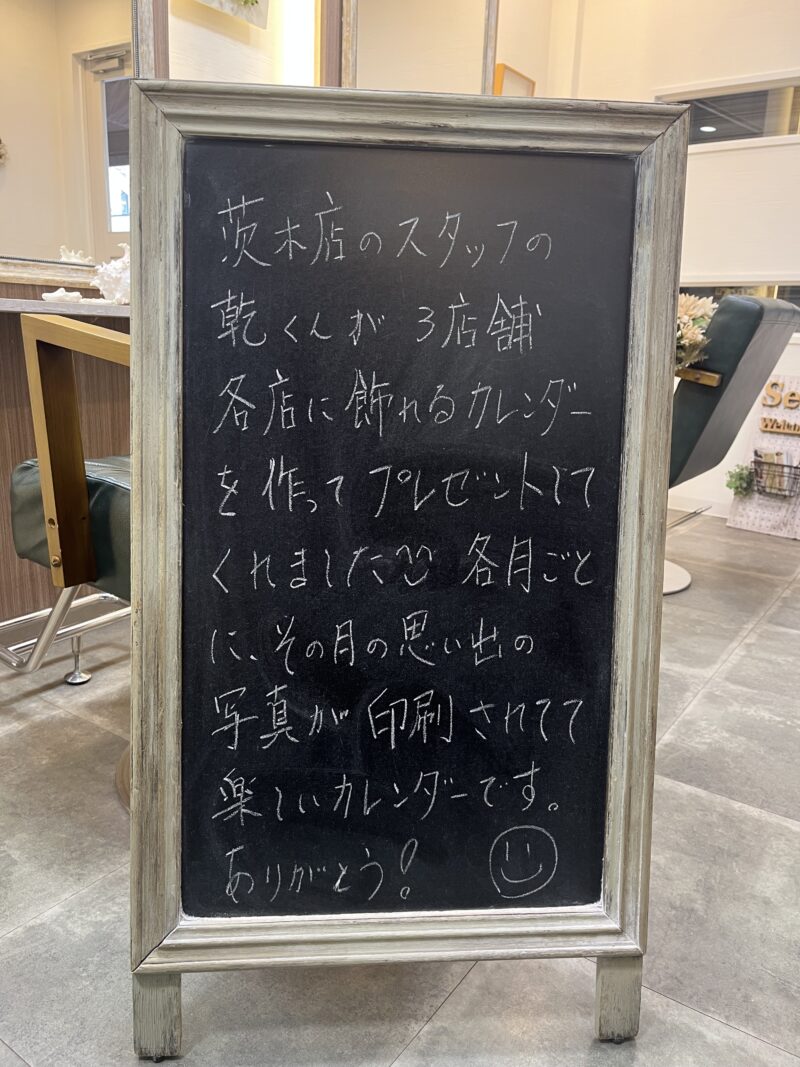 茨木店のスタッフの
乾くんが 3店舗
各店に飾れるカレンダー
を作って プレゼントしてて
くれました 各月ごと
に、その月の思い出の
写真が印刷されてて
楽しいカレンダーです。
ありがとう!
Se
Welcom